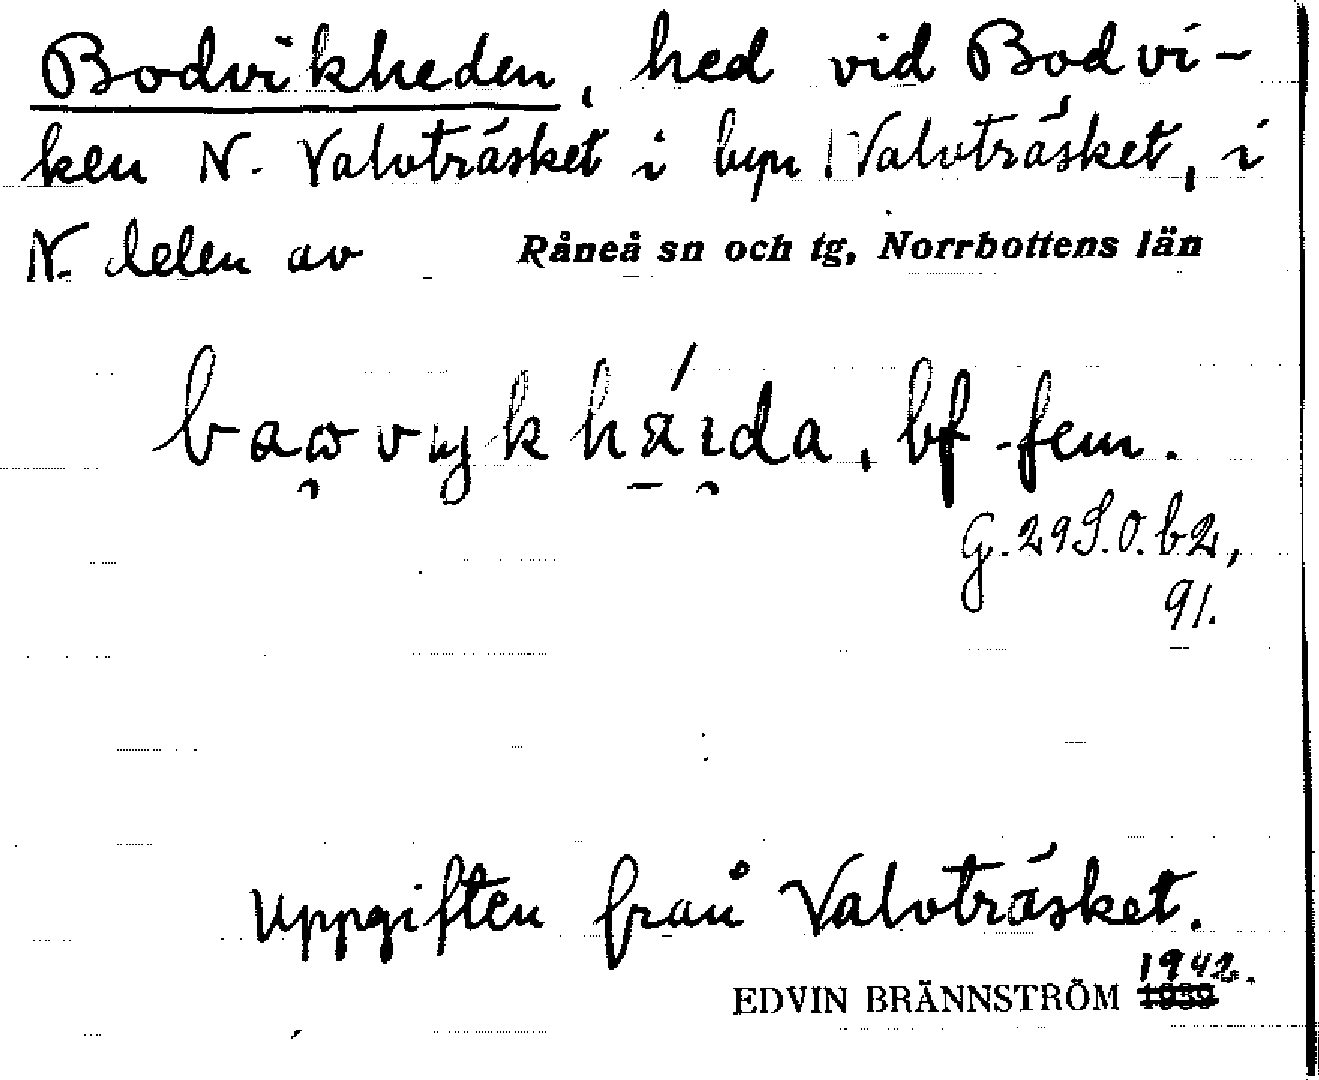 Bodvikheden, hed vid Bodvi-
ken N. Valvträsket i byn Valvträsket, i
N. delen av Råneå sn och tg, Norrbottens län
bf fem.
G. 29 S.O. b2,
91.
Uppgiften från Valvträsket.
1942.
EDVIN BRÄNNSTRÖM 1939